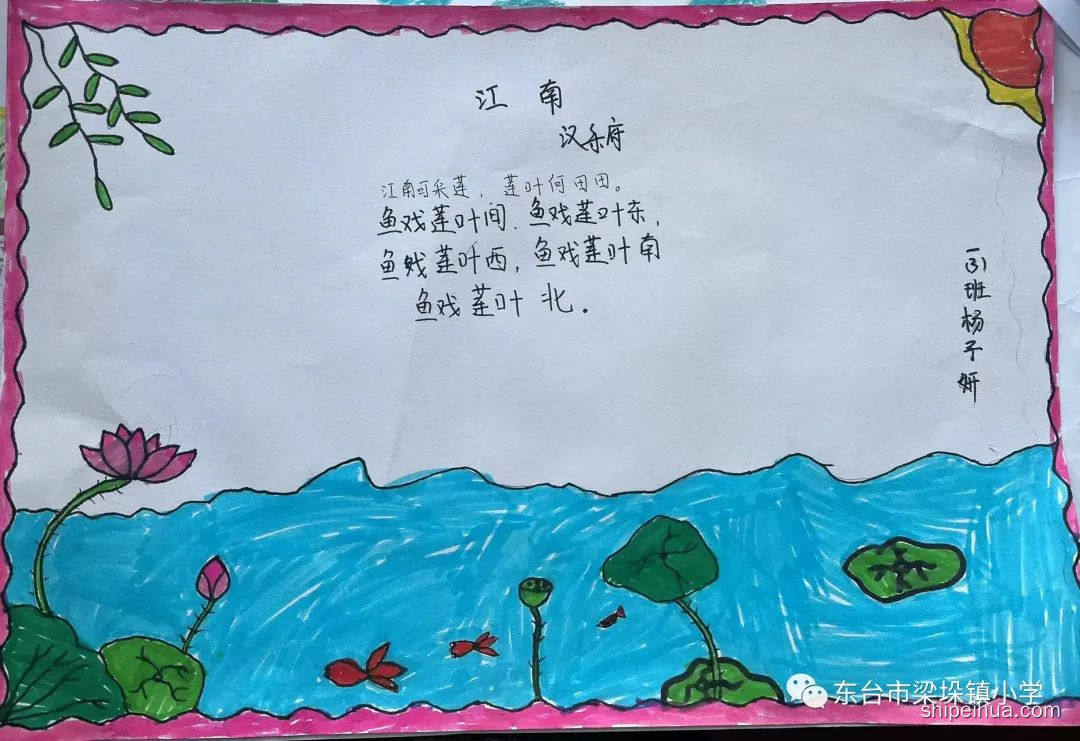 江南
汉乐府
江南可采莲，莲叶何田田。
鱼戏莲叶间.鱼戏莲叶东，
鱼戏莲叶西，鱼戏莲叶南
鱼戏莲叶北.
一(3)班杨予妍
东台市梁垛镇小学
shipeihua.com